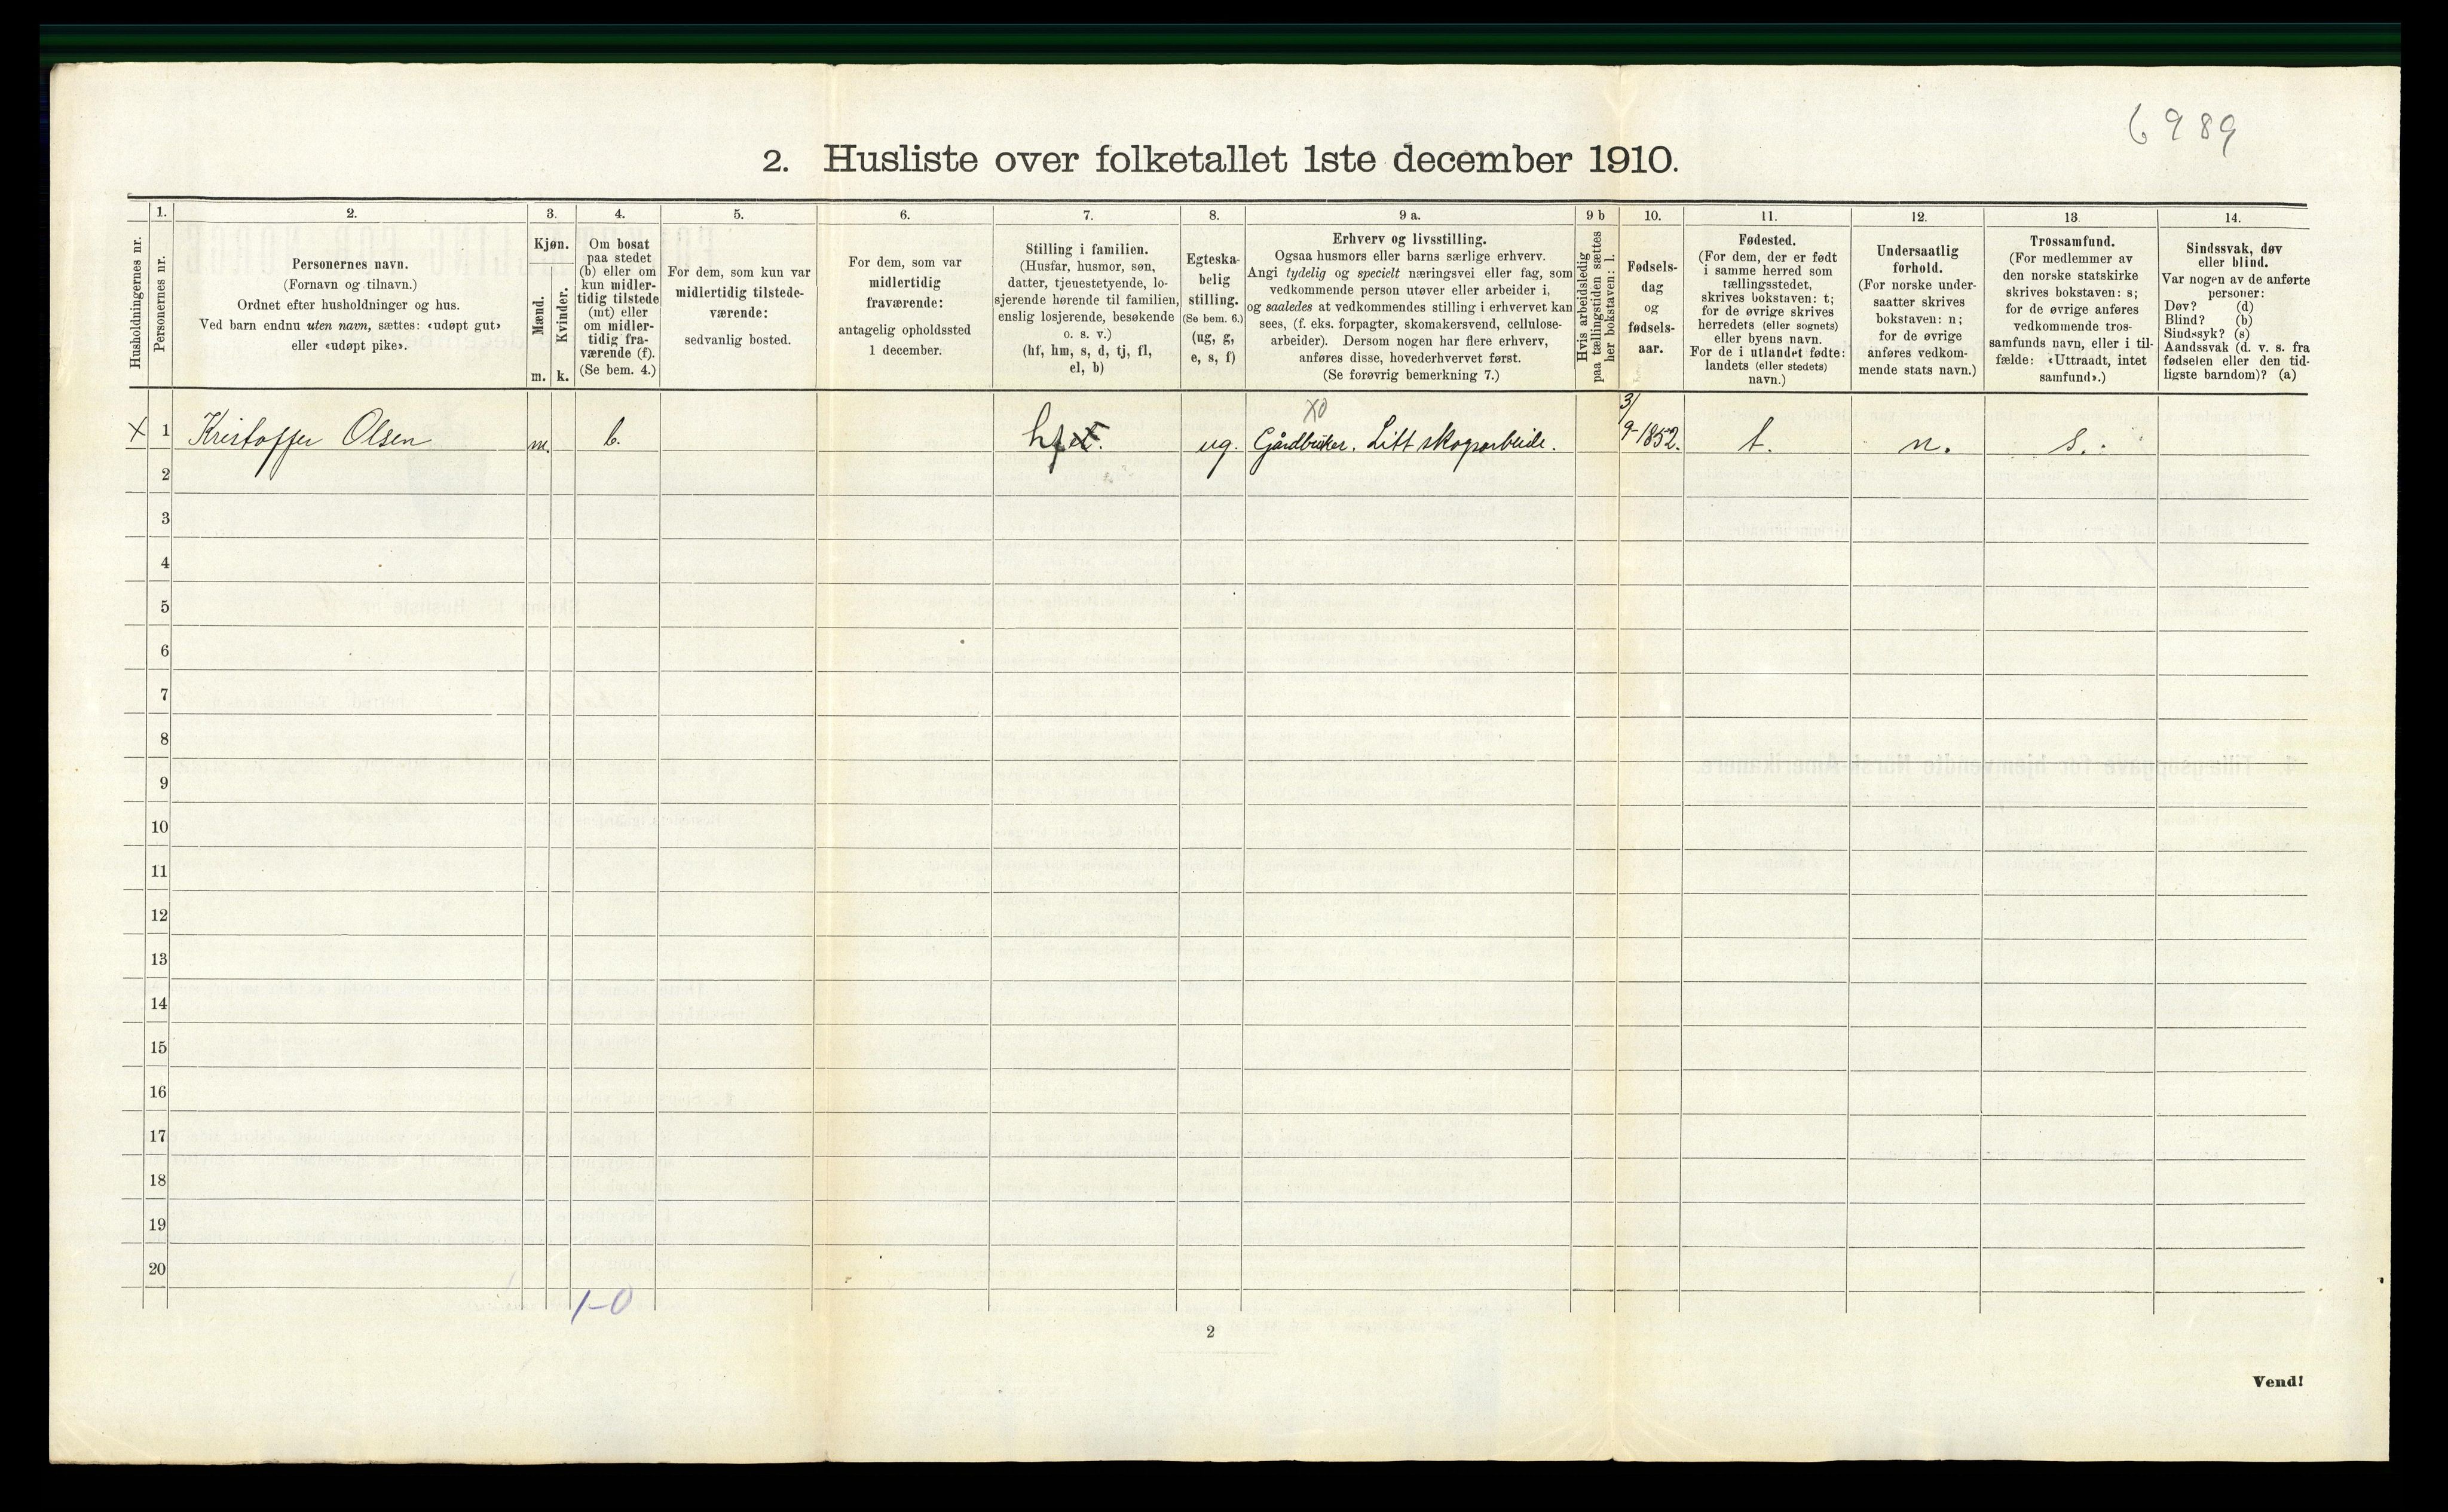 6989
2. Husliste over folketallet 1ste december 1910.
Husholdningernes nr.
1.
Personernes nr.
2.
Personernes navn.
(Fornavn og tilnavn.)
Ordnet efter husholdninger og hus.
Ved barn endnu uten navn, sættes: «udøpt gut»
eller «udøpt pike».
3.
Kjøn.
Mænd.
m.
Kvinder.
k.
4.
Om bosat
paa stedet
(b) eller om
kun midler-
tidig tilstede
(mt) eller
om midler-
tidig fra-
værende (f).
(Se bem. 4.)
5.
For dem, som kun var
midlertidig tilstede-
værende:
sedvanlig bosted.
6.
For dem, som var
midlertidig
fraværende:
antagelig opholdssted
1 december.
7.
Stilling i familien.
(Husfar, husmor, søn,
datter, tjenestetyende, lo-
sjerende hørende til familien,
enslig losjerende, besøkende
o. s. v.)
(hf, hm, s, d, tj, fl,
el, b)
8.
Egteska-
belig
stilling.
(Se bem. 6.)
(ug, g,
e, s, f)
9 a.
Erhverv og livsstilling.
Ogsaa husmors eller barns særlige erhverv.
Angi tydelig og specielt næringsvei eller fag, som
vedkommende person utøver eller arbeider i,
og saaledes at vedkommendes stilling i erhvervet kan
sees, (f. eks. forpagter, skomakersvend, cellulose-
arbeider). Dersom nogen har flere erhverv,
anføres disse, hovederhvervet først.
(Se forøvrig bemerkning 7.)
9 b
Hvis arbeidsledig
paa tællingstiden sættes
her bokstaven: l.
10.
Fødsels-
dag
og
fødsels-
aar.
11.
Fødested.
(For dem, der er født
i samme herred som
tællingsstedet,
skrives bokstaven: t;
for de øvrige skrives
herredets (eller sognets)
eller byens navn.
For de i utlandet fødte:
landets (eller stedets)
navn.)
12.
Undersaatlig
forhold.
(For norske under-
saatter skrives
bokstaven: n;
for de øvrige
anføres vedkom-
mende stats navn.)
13.
Trossamfund.
(For medlemmer av
den norske statskirke
skrives bokstaven: s;
for de øvrige anføres
vedkommende tros-
samfunds navn, eller i til-
fælde: «Uttraadt, intet
samfund».)
14.
Sindssvak, døv
eller blind.
Var nogen av de anførte
personer:
Døv? (d)
Blind? (b)
Sindssyk? (s)
Aandssvak (d. v. s. fra
fødselen eller den tid-
ligste barndom)? (a)
X0
X 1 Kristoffer Olsen m. b. hf ug. Gårdbruker. Litt skogarbeide. 3/9-1852. t. n. s.
2
3
4
5
6
7
8
9
10
11
12
13
14
15
16
17
18
19
20
1-0
2
Vend!